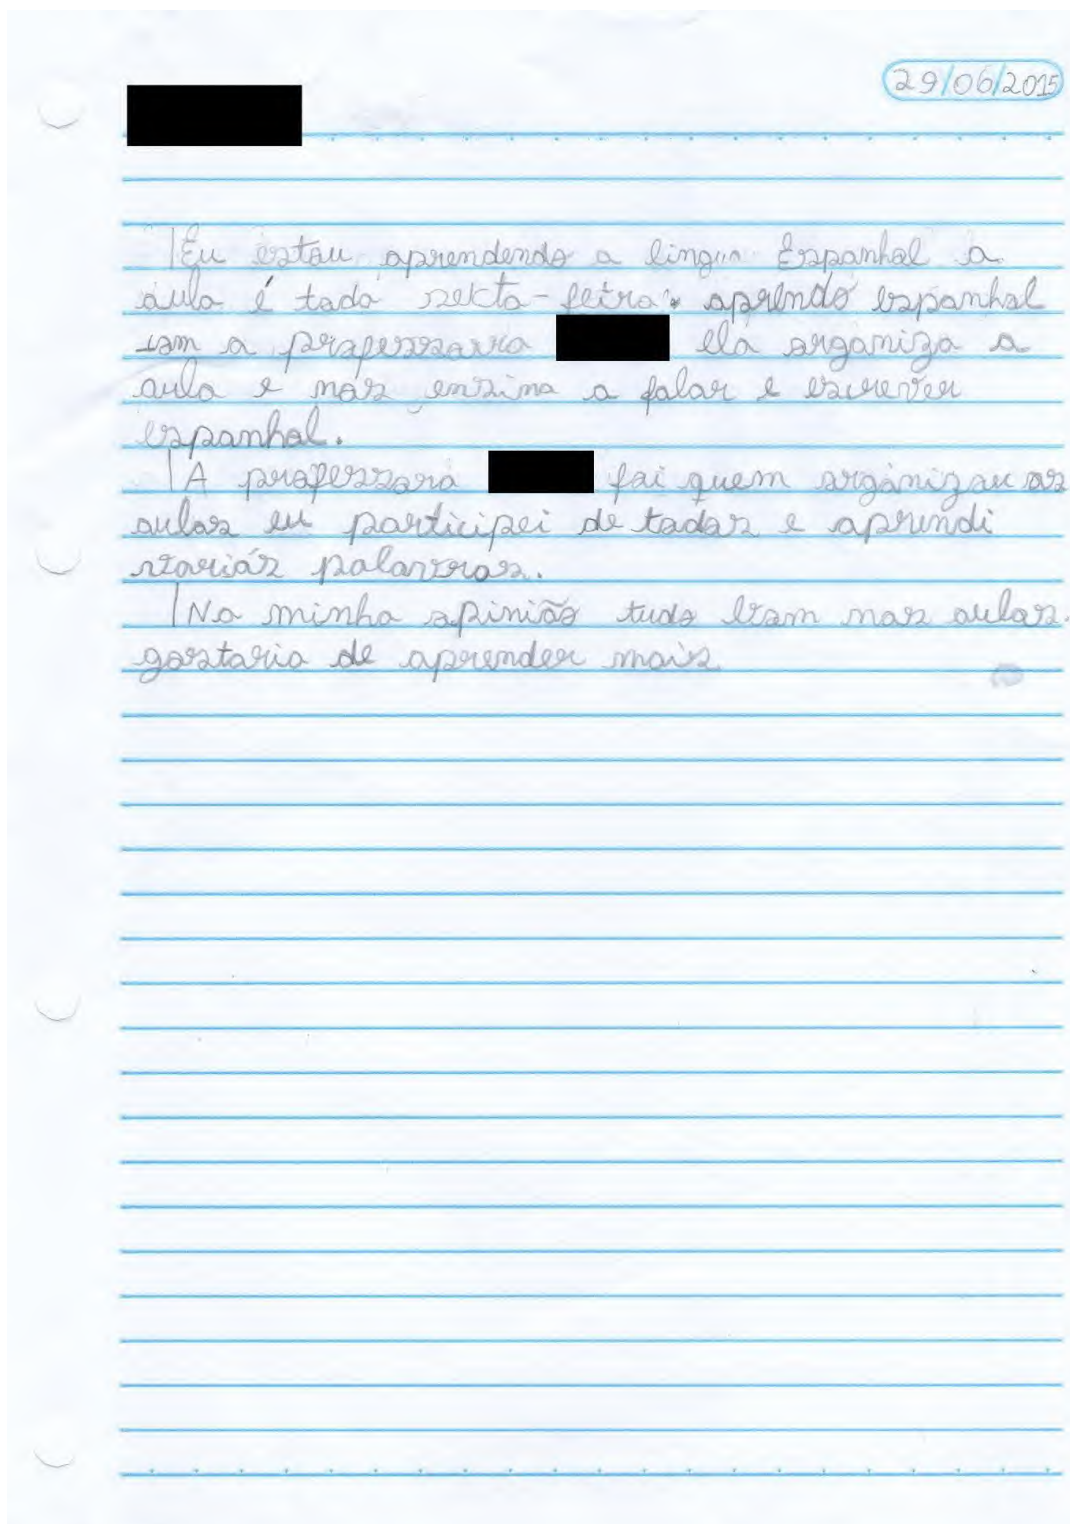 29/06/2015
Eu estou aprendendo a lingua Espanhol a
aula é toda sekta-feira. aprendo espanhol
com a professorra ela organiza a
aula e nos ensina a falar e escrever
espanhol.
A professora foi quem organizou as
aulas eu participei de todas e aprendi
variás palavras.
Na minha opinião tudo bom nas aulas.
gostaria de aprender mais